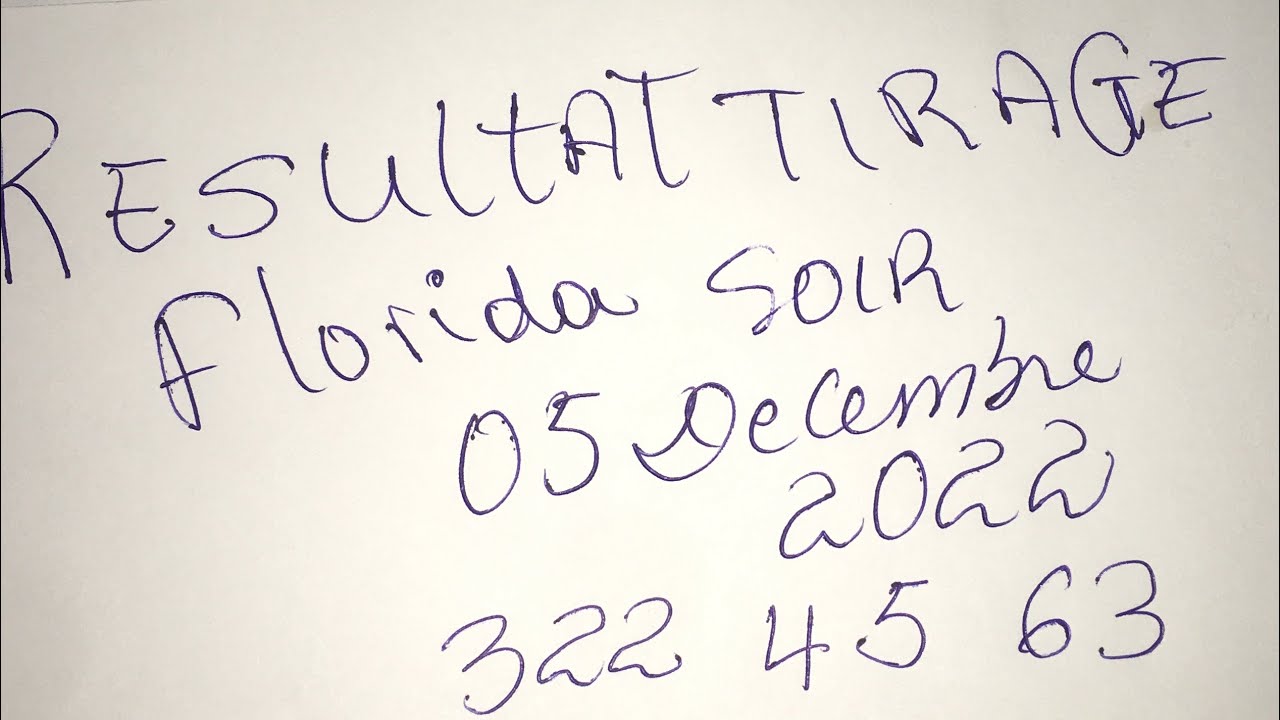 RESULTAT TIRAGE
Florida SOIR
05 Decembre
2022
322 45 63